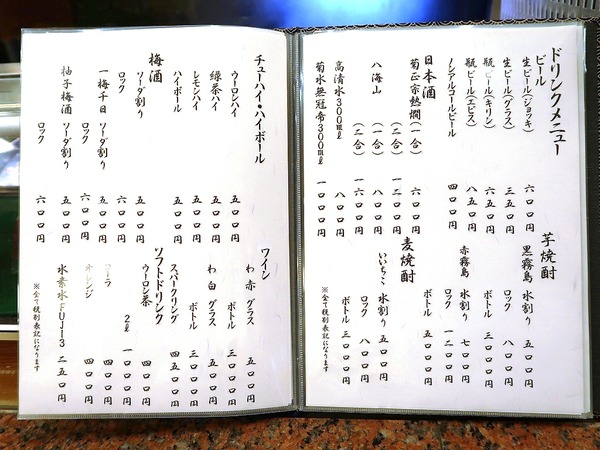 ドリンクメニュー
ビール
生ビール(ジョッキ) 六〇〇円
生ビール(グラス) 三五〇円
瓶ビール(キリン) 六五〇円
瓶ビール(エビス) 八五〇円
ノンアルコールビール 四〇〇円
日本酒
菊正宗熱燗(一合) 六〇〇円
(二合) 一二〇〇円
八海山 (一合) 八〇〇円
(二合) 一六〇〇円
高清水300㎖ 八〇〇円
菊水無冠帝300㎖ 一〇〇〇円
芋焼酎
黒霧島 水割り 五〇〇円
ロック 八〇〇円
ボトル 三〇〇〇円
赤霧島 水割り 七〇〇円
ロック 一二〇〇円
ボトル 五〇〇〇円
麦焼酎
いいちこ 水割り 五〇〇円
ロック 八〇〇円
ボトル 三〇〇〇円
※全て税別表記になります
チューハイ・ハイボール
ウーロンハイ 五〇〇円
緑茶ハイ 五〇〇円
レモンハイ 五〇〇円
ハイボール 五〇〇円
梅酒
ソーダ割り 五〇〇円
ロック 六〇〇円
一梅千日 ソーダ割り 五〇〇円
ロック 六〇〇円
柚子梅酒 ソーダ割り 五〇〇円
ロック 六〇〇円
ワイン
わ赤 グラス 五〇〇円
ボトル 三〇〇〇円
わ白 グラス 五〇〇円
ボトル 三〇〇〇円
スパークリング 四五〇〇円
ソフトドリンク
ウーロン茶 四〇〇円
2ℓ 一〇〇〇円
ーラ 四〇〇円
オレンジ 四〇〇円
水素水FUJI3 二五〇円
※全て税別表記になります